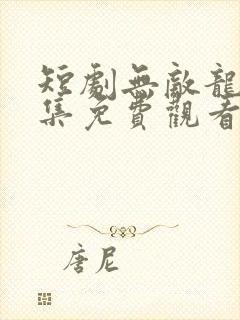 短劇無敵龍
集免費觀看
唐尼